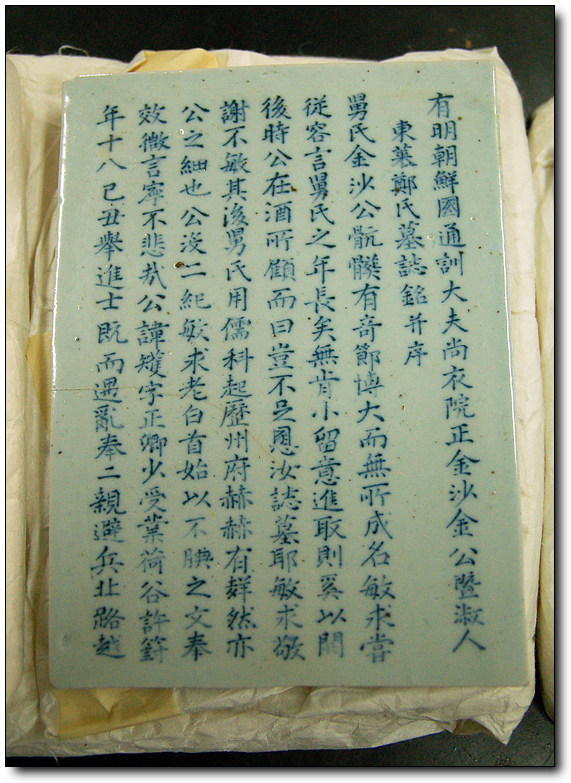 有明朝鮮國通訓大夫尚衣院正金沙金公曁淑人
東萊鄭氏墓誌銘并序
舅氏金沙公骯髒有竒節博大而無所成名敏求嘗
従容言舅氏之年長矣無肯小留意進取則奚以開
後時公在酒所顧而曰豈不足慁汝誌墓耶敏求敬
謝不敏其後舅氏用儒科起歷州府赫赫有群然亦
公之細也公沒二紀敏求老白首始以不腆之文奉
效微言寧不悲㢤公諱矱字正卿少受業荷谷許篈
年十八己丑舉進士既而遇亂奉二親避兵北路越